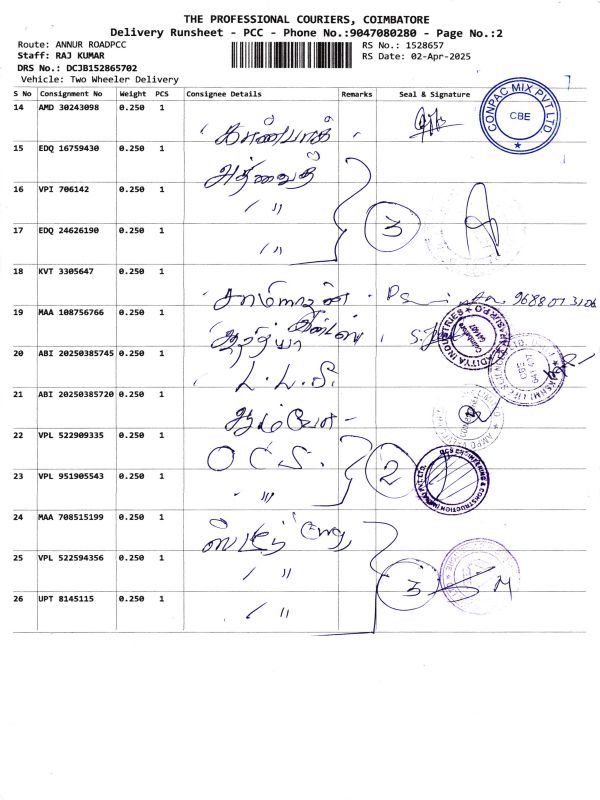 THE PROFESSIONAL COURIERS, COIMBATORE
Delivery Runsheet - PCC - Phone No.:9047080280 - Page No.:2
Route: ANNUR ROADPCC
Staff: RAJ KUMAR
DRS No.: DCJB152865702
Vehicle: Two Wheeler Delivery
RS No.: 1528657
RS Date: 02-Apr-2025
S No Consignment No Weight PCS Consignee Details Remarks Seal & Signature
14 AMD 30243098 0.250 1 கான்பாக்
CONPAC MIX PVT LTD CBE
15 EDQ 16759430 0.250 1
16 VPI 706142 0.250 1 〃 3
17 EDQ 24626190 0.250 1 〃
18 KVT 3305647 0.250 1 9688013106
19 MAA 108756766 0.250 1 ஆதித்யா
ADITYA INDUSTRIES
20 ABI 20250385745 0.250 1 L.L.S.
21 ABI 20250385720 0.250 1
22 VPL 522909335 0.250 1 O C S. 2
OCS ENGINEERING & CONSTRUCTION (INDIA) PVT. LTD.
23 VPL 951905543 0.250 1 〃
24 MAA 708515199 0.250 1
25 VPL 522594356 0.250 1 〃 3
26 UPT 8145115 0.250 1 〃